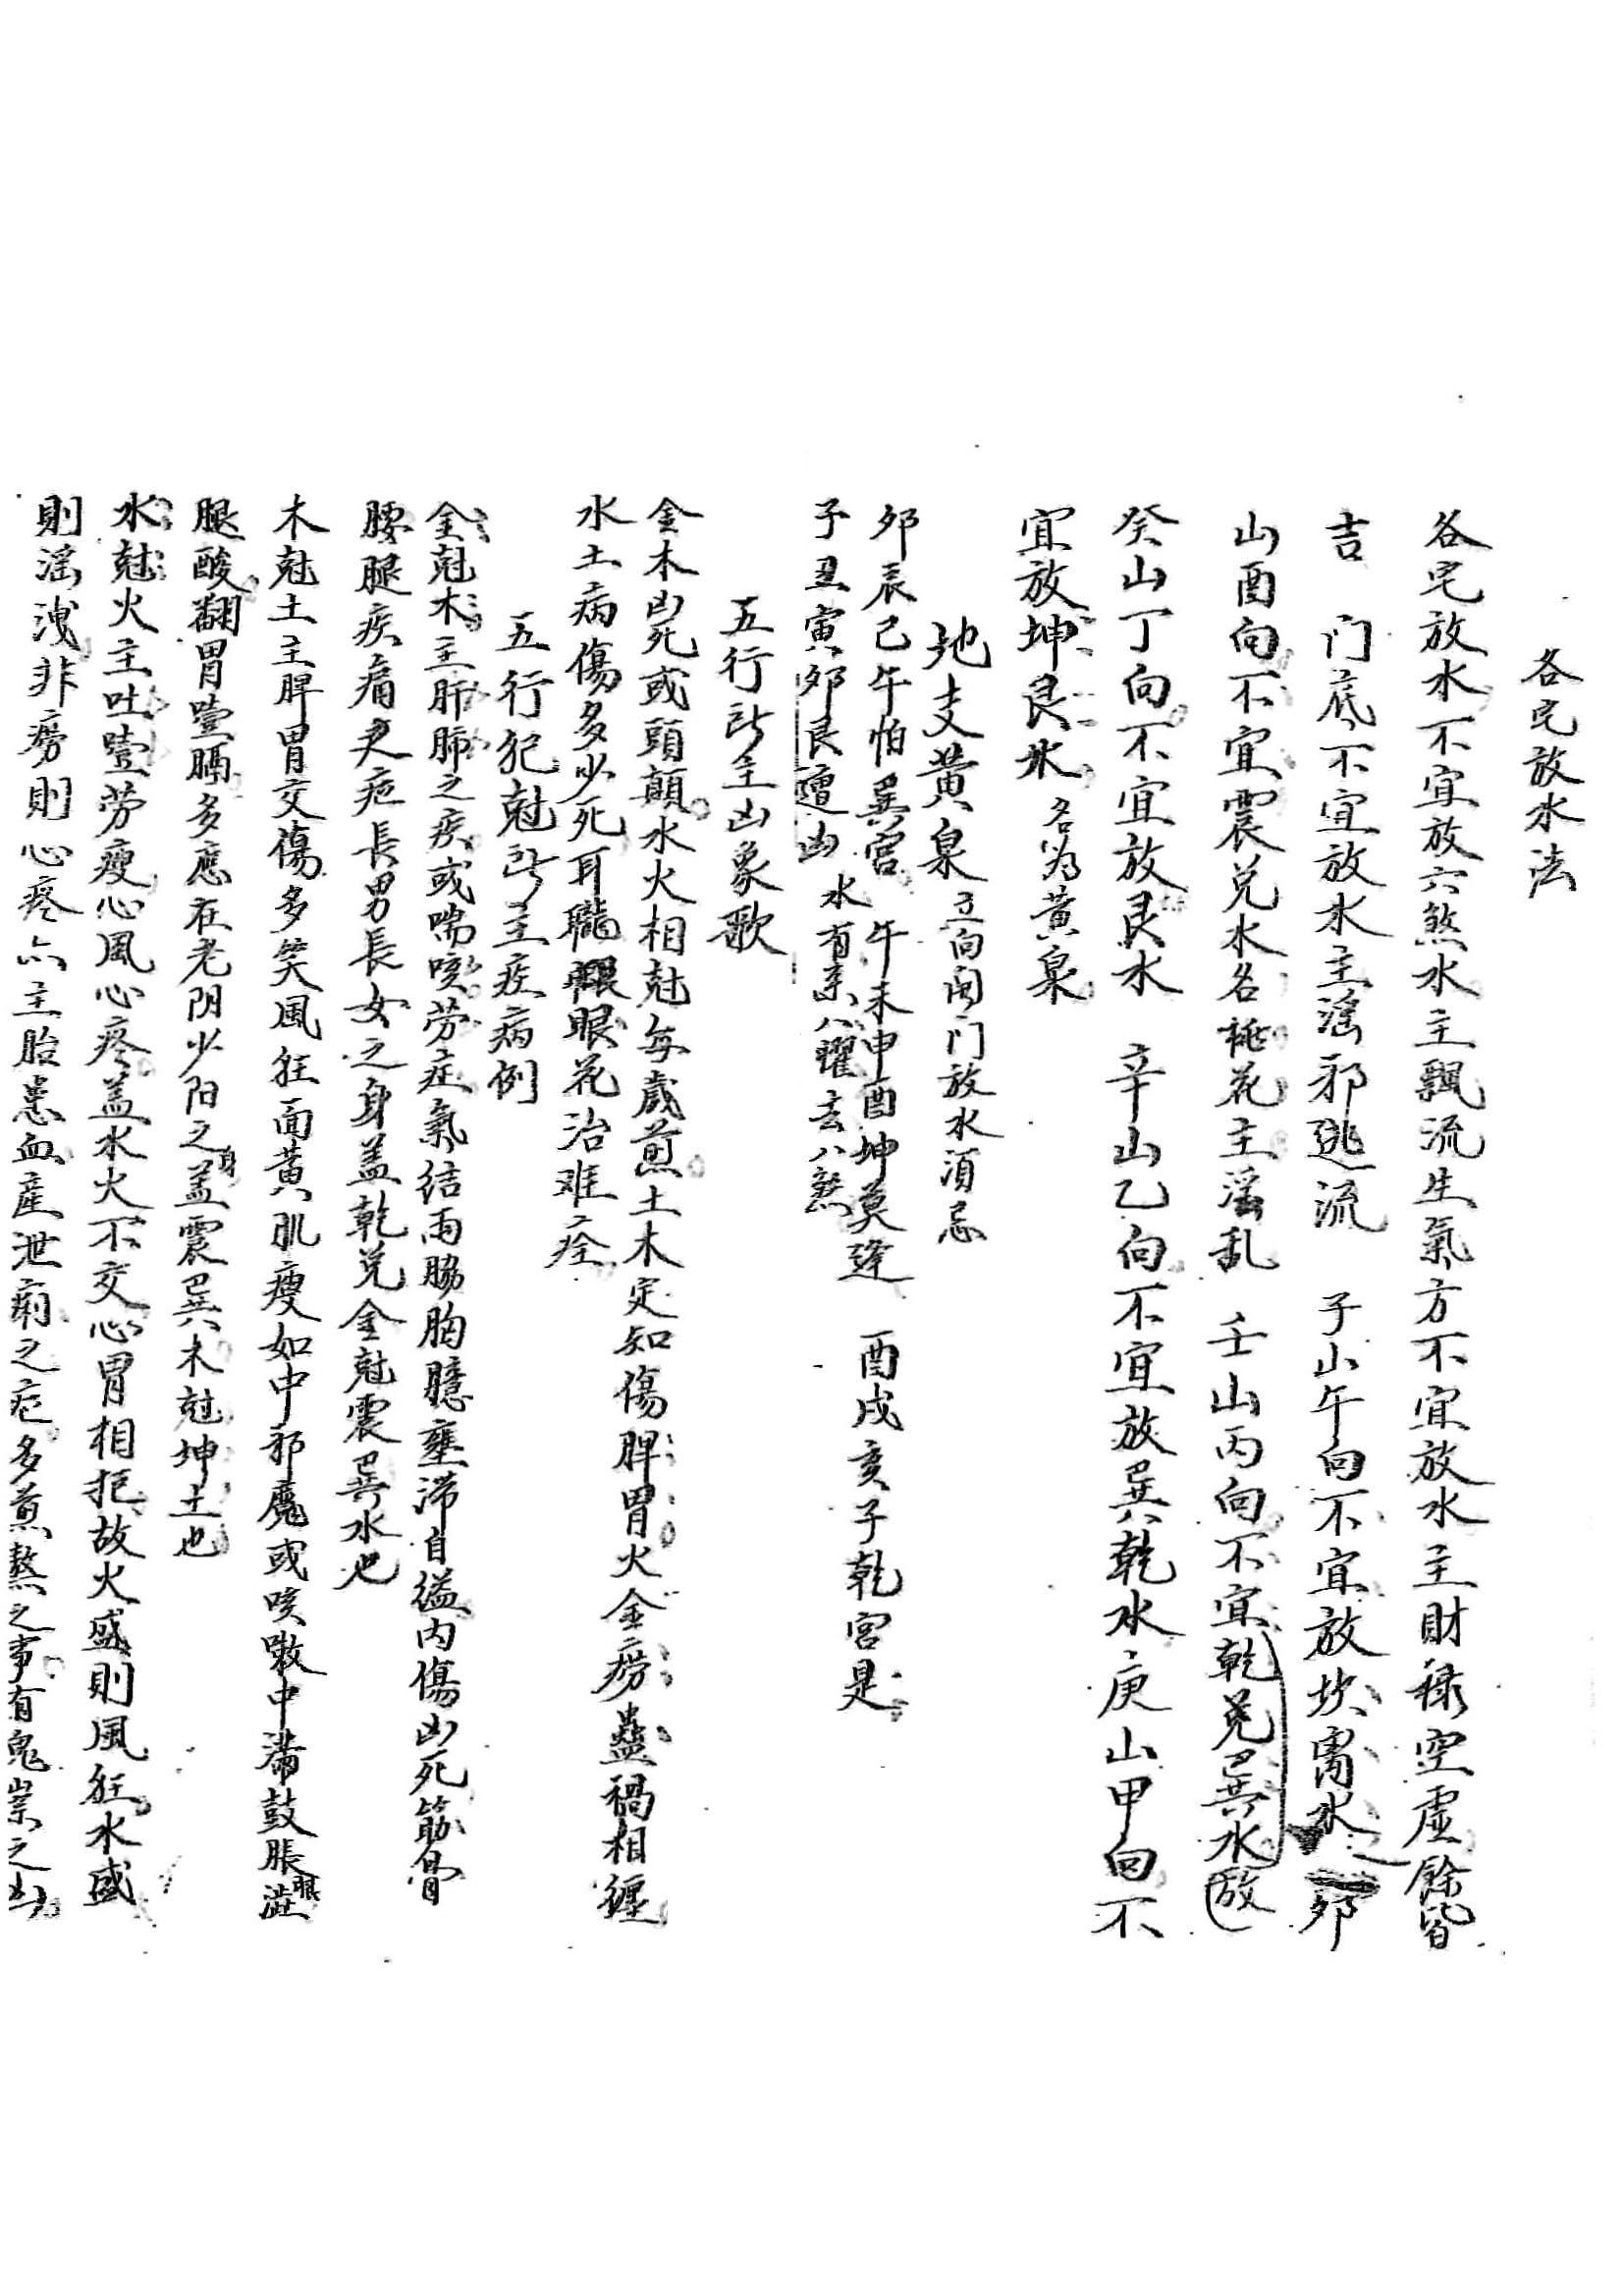 各宅放水法
各宅放水不宜放六煞水主飄流生氣方不宜放水主財祿空虛餘皆
吉　门底不宜放水主滛邪逃流　子山午向不宜放坎离水　卯
山酉向不宜震兌水名桃花主滛乱　壬山丙向不宜乾兌巽水放
癸山丁向不宜放艮水　辛山乙向不宜放巽乾水庚山甲向不
宜放坤艮水　名为黃泉
地支黃泉　立向開门放水須忌
卯辰巳午怕巽宮　午未申酉坤莫逢　酉戌亥子乾宮是
子丑寅卯艮遭凶　水有来八曜去八煞
五行所主凶象歌
金木凶死或頭顛水火相尅每歲煎土木定知傷脾胃火金痨蠱禍相纏
水土病傷多少死耳聾眼花治难痊
五行犯尅所主疾病例
金尅木主肝肺之疾或喘咳劳症氣結两脇胸臆壅滞自缢内傷凶死筋骨
腰腿疾痛之疤長男長女之身盖乾兌金尅震巽木也
木尅土主脾胃交傷多笑風狂面黃肌瘦如中邪魔或咳嗽中滿鼓脹澁
腿酸翻胃噎膈多應在老阴少阳之身盖震巽木尅坤土也
水尅火主吐噎劳瘦心風心疼盖水火不交心胃相拒故火盛則風狂水盛
則滛洩非痨則心疼亦主胎患血產泄痢之疤多煎熬之事有鬼祟之凶